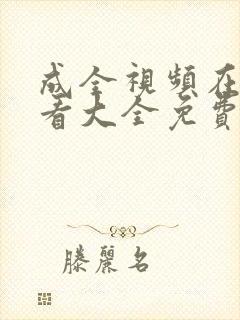 成全視頻在
看大全免費
滕麗名